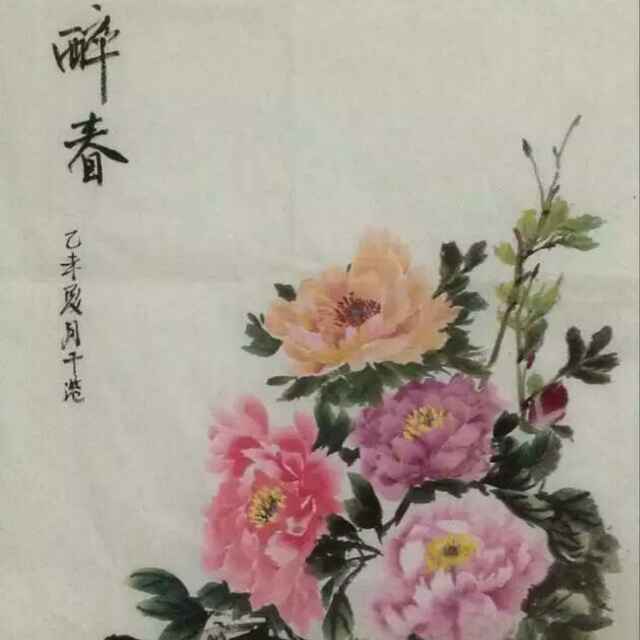 醉春
乙未夏月于港